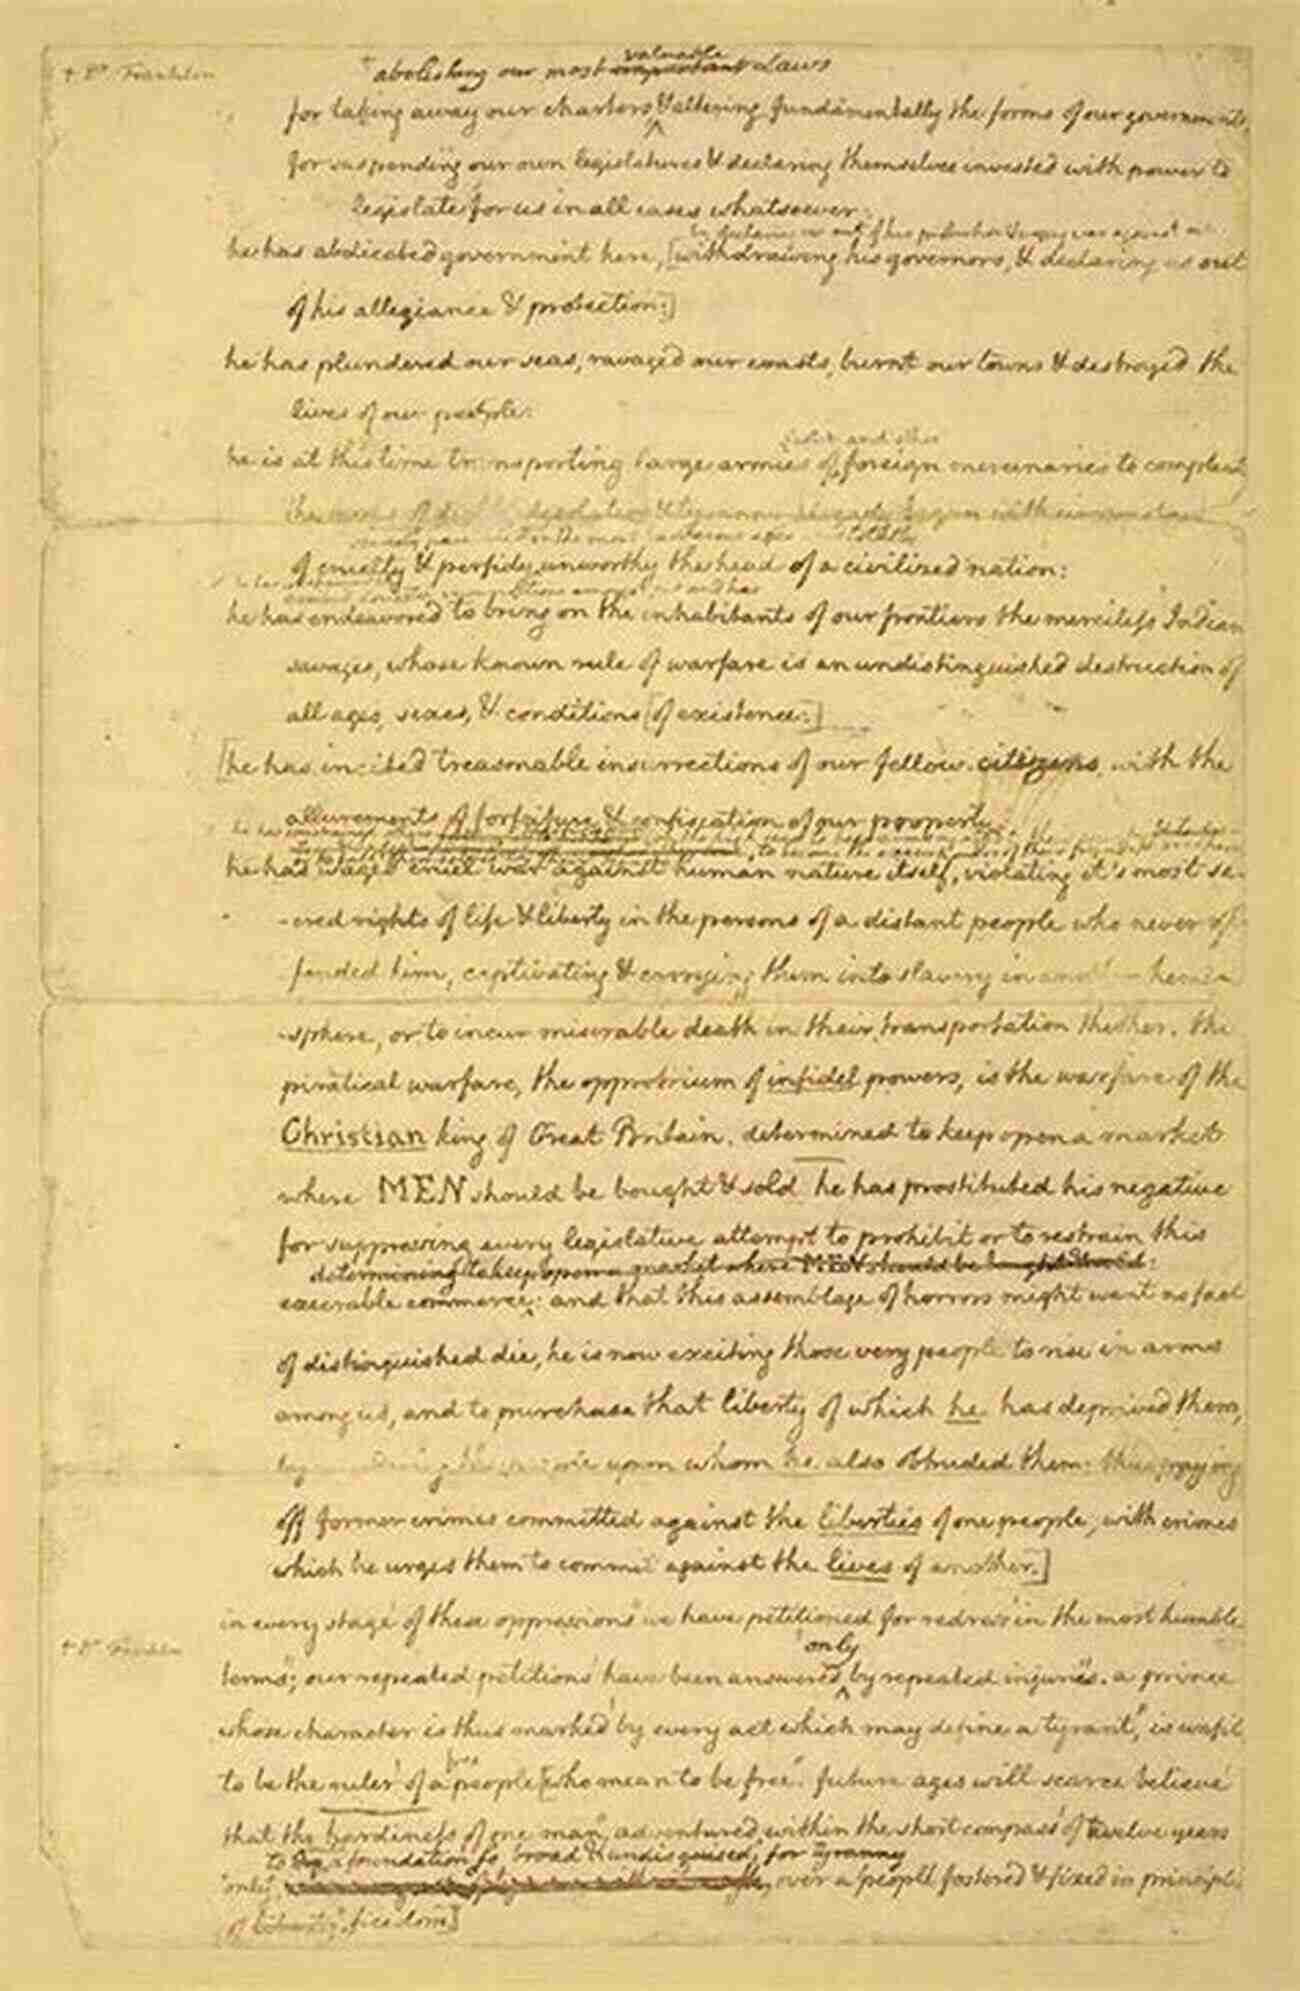 + Dr. Franklin
abolishing our most important valuable Laws
for taking away our charters & altering fundamentally the forms of our governments,
for suspending our own legislatures & declaring themselves invested with power to
legislate for us in all cases whatsoever:
by declaring us out of his protection & waging war against us
he has abdicated government here, [withdrawing his governors, & declaring us out
of his allegiance & protection:]
he has plundered our seas, ravaged our coasts, burnt our towns & destroyed the
lives of our people:
Scotch and other
he is at this time transporting large armies of foreign mercenaries to compleat
the works of death desolation & tyranny already begun with circumstances
scarcely paralleled in the most barbarous ages totally
of cruelty & perfidy unworthy the head of a civilized nation:
he has endeavored to bring on the inhabitants of our frontiers the merciless Indian
savages, whose known rule of warfare is an undistinguished destruction of
all ages, sexes, & conditions [of existence:]
[he has incited treasonable insurrections of our fellow-citizens, with the
allurements of forfeiture & confiscation of our property.
he has waged cruel war against human nature itself, violating it's most sa-
-cred rights of life & liberty in the persons of a distant people who never of-
fended him, captivating & carrying them into slavery in another hemi-
-sphere, or to incur miserable death in their transportation thither. this
piratical warfare, the opprobrium of infidel powers, is the warfare of the
Christian king of Great Britain. determined to keep open a market
where MEN should be bought & sold he has prostituted his negative
for suppressing every legislative attempt to prohibit or to restrain this
determining to keep open a market where MEN should be bought & sold:
execrable commerce: and that this assemblage of horrors might want no fact
of distinguished die, he is now exciting those very people to rise in arms
among us, and to purchase that liberty of which he has deprived them,
by upon whom he also obtruded them: thus paying
off former crimes committed against the liberties of one people, with crimes
which he urges them to commit against the lives of another.]
in every stage of these oppressions we have petitioned for redress in the most humble
only
+ Dr. Franklin
terms; our repeated petitions have been answered by repeated injuries. a prince
whose character is thus marked by every act which may define a tyrant, is unfit
free
to be the ruler of a people [who mean to be free. future ages will scarce believe
that the hardiness of one man, adventured within the short compass of twelve years
to a foundation so broad & undisguised, for tyranny
only, over a people fostered & fixed in principles
of freedom]